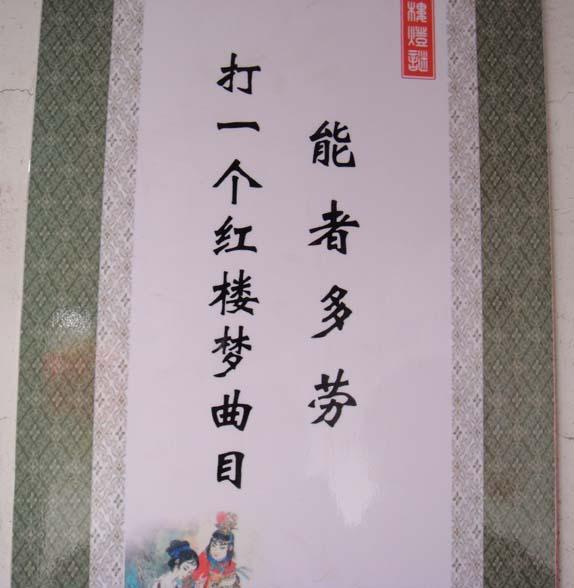 樓燈謎
能者多劳
打一个红楼梦曲目